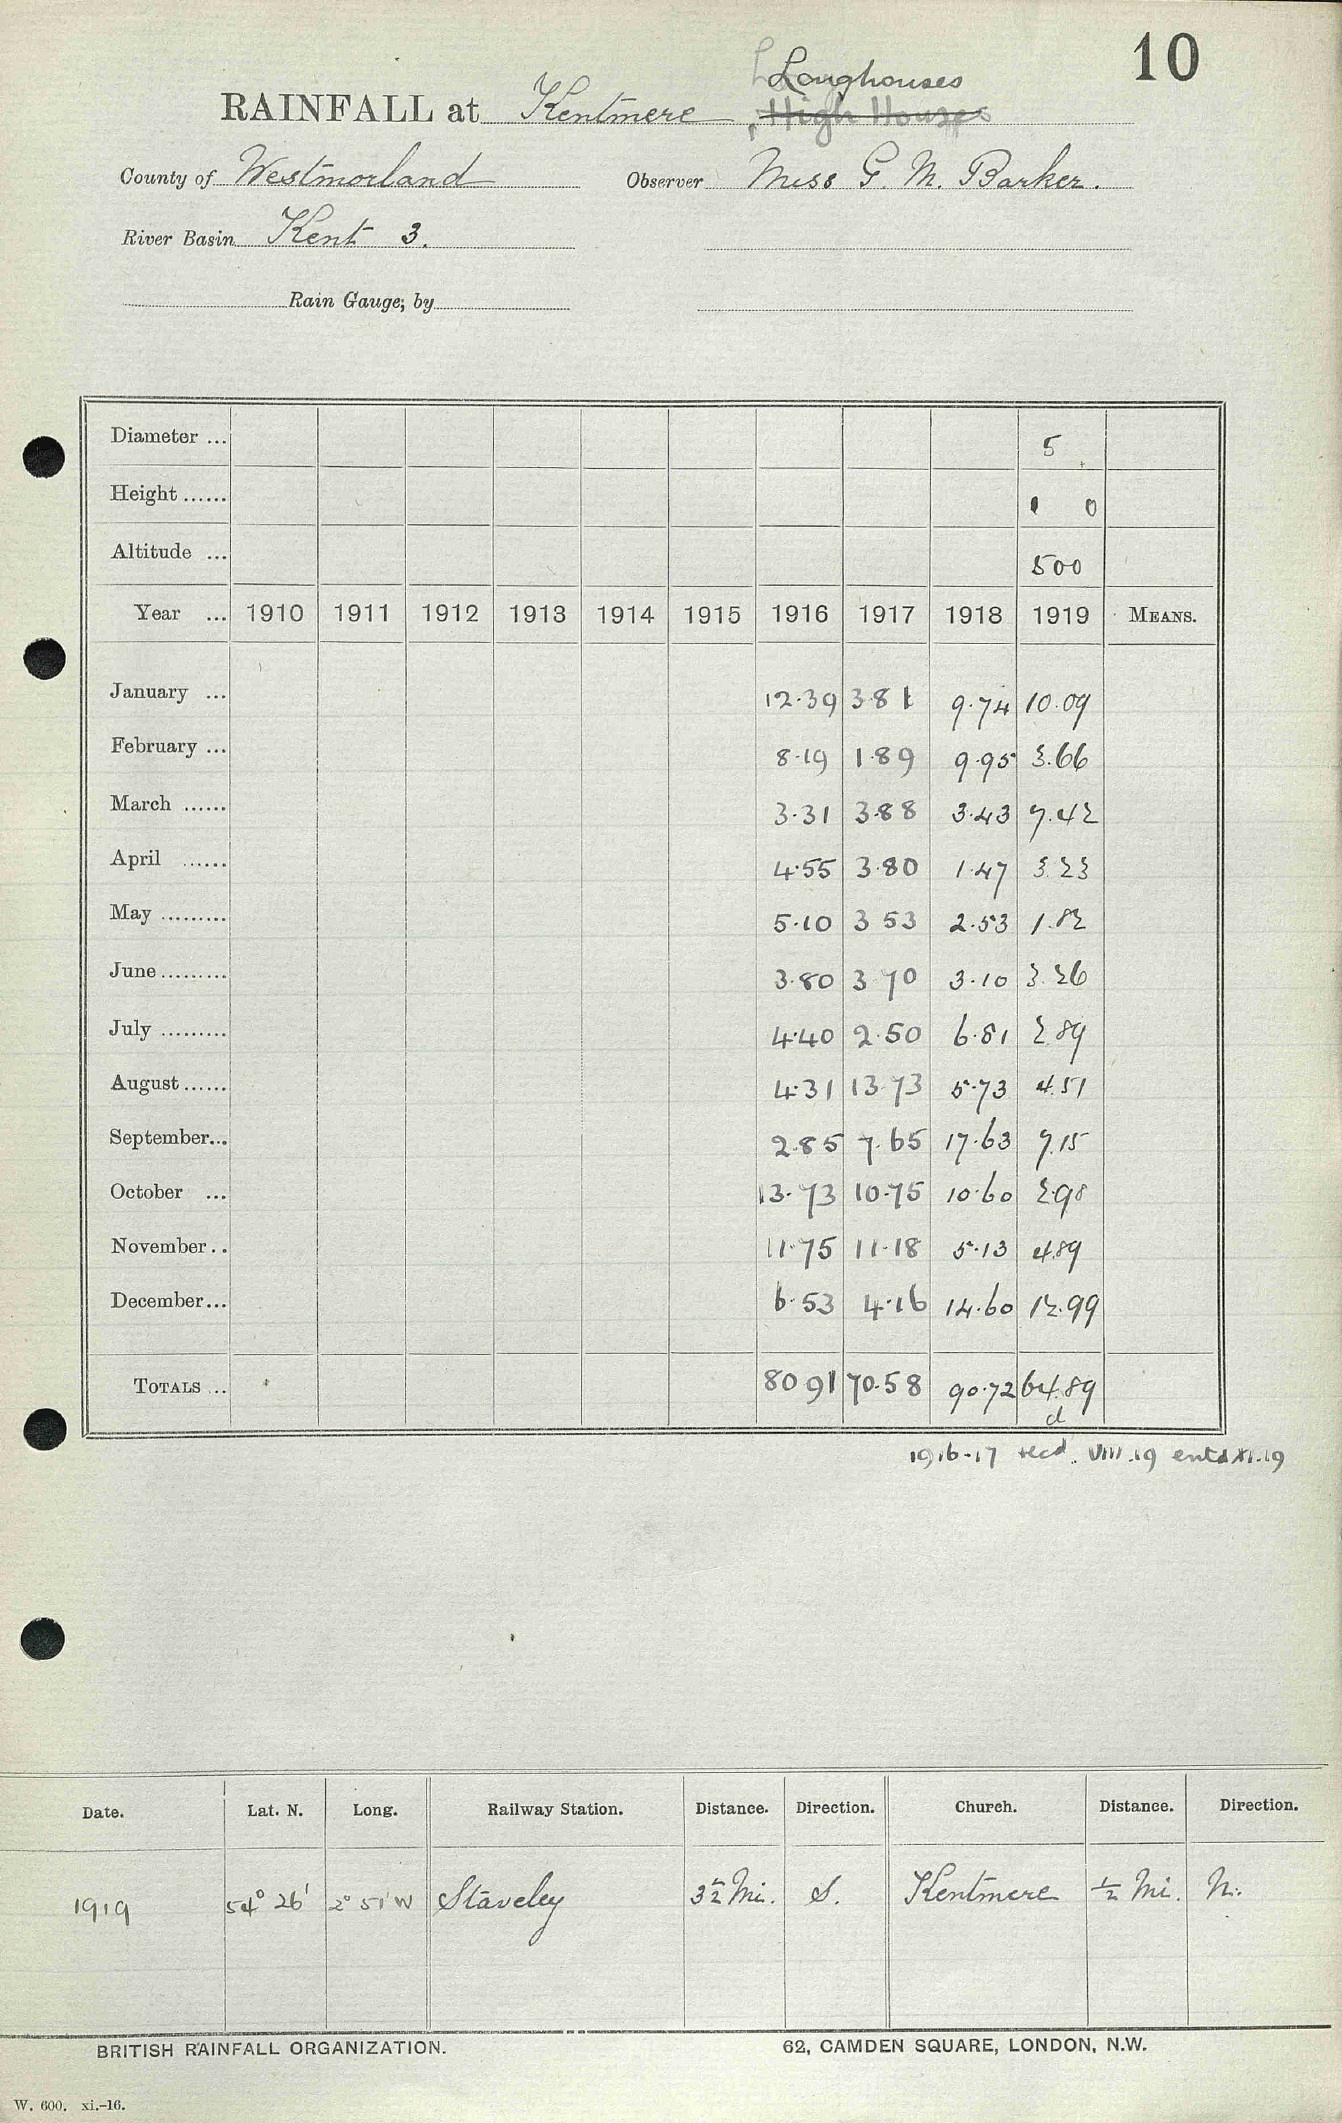 10
Longhouses
RAINFALL at Kentmere, High Houses
County of Westmorland Observer Miss G. M. Barker.
River Basin Kent 3.
Rain Gauge, by
Diameter ... 5
Height ...... 1 0
Altitude ... 500
Year ... 1910 1911 1912 1913 1914 1915 1916 1917 1918 1919 MEANS.
January ... 12.39 3.81 9.74 10.09
February ... 8.19 1.89 9.95 3.66
March ...... 3.31 3.88 3.43 7.42
April ...... 4.55 3.80 1.47 3.23
May ......... 5.10 3 53 2.53 1.82
June ......... 3.80 3 70 3.10 3.26
July ......... 4.40 2.50 6.81 2.89
August ...... 4.31 13.73 5.73 4.51
September... 2.85 7.65 17.63 7.15
October ... 13.73 10.75 10.60 2.98
November.. 11.75 11.18 5.13 4.89
December... 6.53 4.16 14.60 12.99
TOTALS ... 80 91 70.58 90.72 64.89
d
1916-17 recd. VIII.19 entd XI.19
Date. Lat. N. Long. Railway Station. Distance. Direction. Church. Distance. Direction.
1919 54° 26' 2° 51' W Staveley 3½ Mi. S. Kentmere ½ Mi. N.
BRITISH RAINFALL ORGANIZATION. 62, CAMDEN SQUARE, LONDON, N.W.
W. 600. xi.-16.